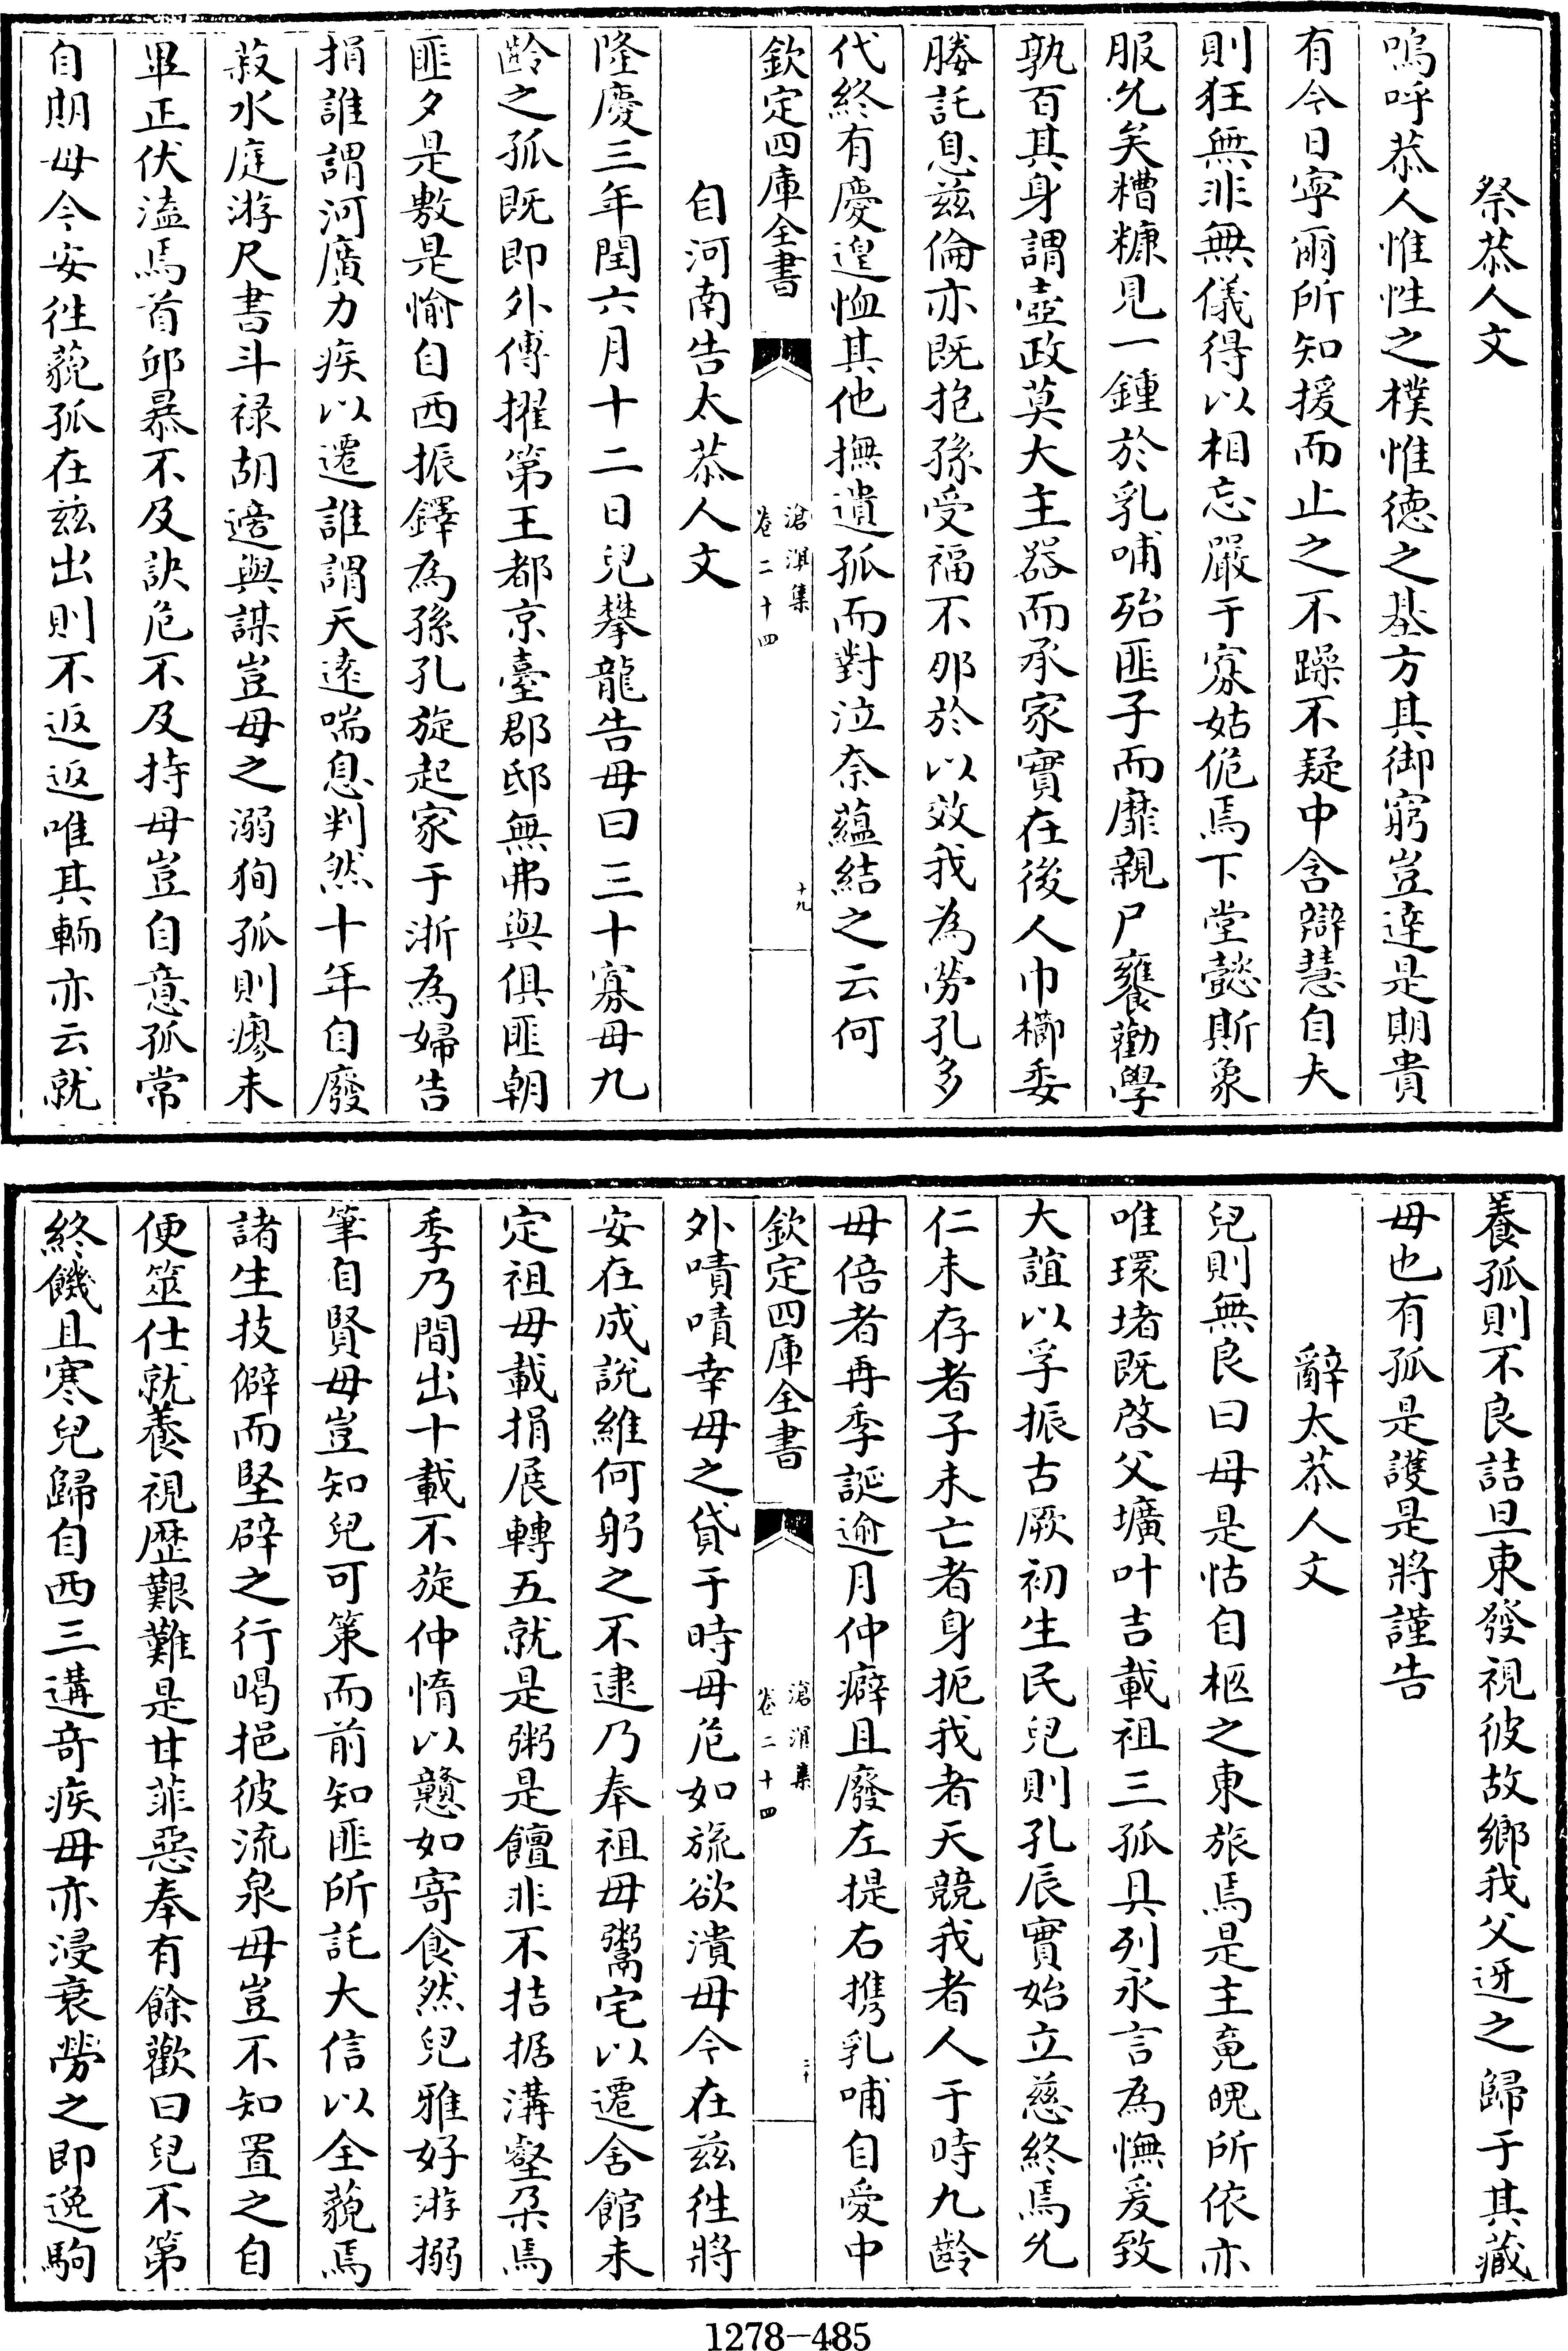 祭恭人文
嗚呼恭人惟性之樸惟徳之基方其御窮豈逹是期貴
有今日寧爾所知援而止之不躁不疑中含辯慧自夫
則狂無非無儀得以相忘嚴于寡姑侂焉下堂懿斯象
服允矣糟糠見一鍾於乳哺殆匪子而靡親尸饔勸學
孰百其身謂壼政莫大主器而承家實在後人巾櫛委
媵託息兹倫亦既抱孫受福不那於以效我為勞孔多
代終有慶遑恤其他撫遺孤而對泣奈藴結之云何
欽定四庫全書
滄溟集
卷二十四
十九
自河南告太恭人文
隆慶三年閏六月十二日兒攀龍告母曰三十寡母九
齡之孤既即外傅擢第王都京臺郡邸無弗與俱匪朝
匪夕是敷是愉自西振鐸為孫孔旋起家于浙為婦告
捐誰謂河廣力疾以遷誰謂天逺喘息判然十年自廢
菽水庭游尺書斗禄胡遄與謀豈母之溺狥孤則瘳未
畢正伏溘焉首邱暴不及訣危不及持母豈自意孤常
自期母今安徃藐孤在兹出則不返返唯其輀亦云就
養孤則不良詰旦東發視彼故鄉我父迓之歸于其藏
母也有孤是護是將謹告
辭太恭人文
兒則無良曰母是怙自柩之東旅焉是主竟晩所依亦
唯環堵既啓父壙叶吉載祖三孤具列永言為憮爰致
大誼以孚振古厥初生民兒則孔辰實始立慈終焉允
仁未存者子未亡者身扼我者天競我者人于時九齡
毋倍者再季誕逾月仲癖且廢左提右携乳哺自愛中
欽定四庫全書
滄溟集
卷二十四
二十
外嘖嘖幸母之貸于時母危如旒欲潰母今在兹徃將
安在成説維何躬之不逮乃奉祖母鬻宅以遷舍館未
定祖母載捐展轉五就是粥是饘非不拮据溝壑朶焉
季乃間出十載不旋仲惰以戇如寄食然兒雅好游搦
筆自賢母豈知兒可策而前知匪所託大信以全藐焉
諸生技僻而堅辟之行暍挹彼流泉母豈不知置之自
便筮仕就養視歴艱難是甘菲惡奉有餘歡曰兒不第
終饑且寒兒歸自西三遘竒疾母亦浸衰勞之即逸駒
1278-485